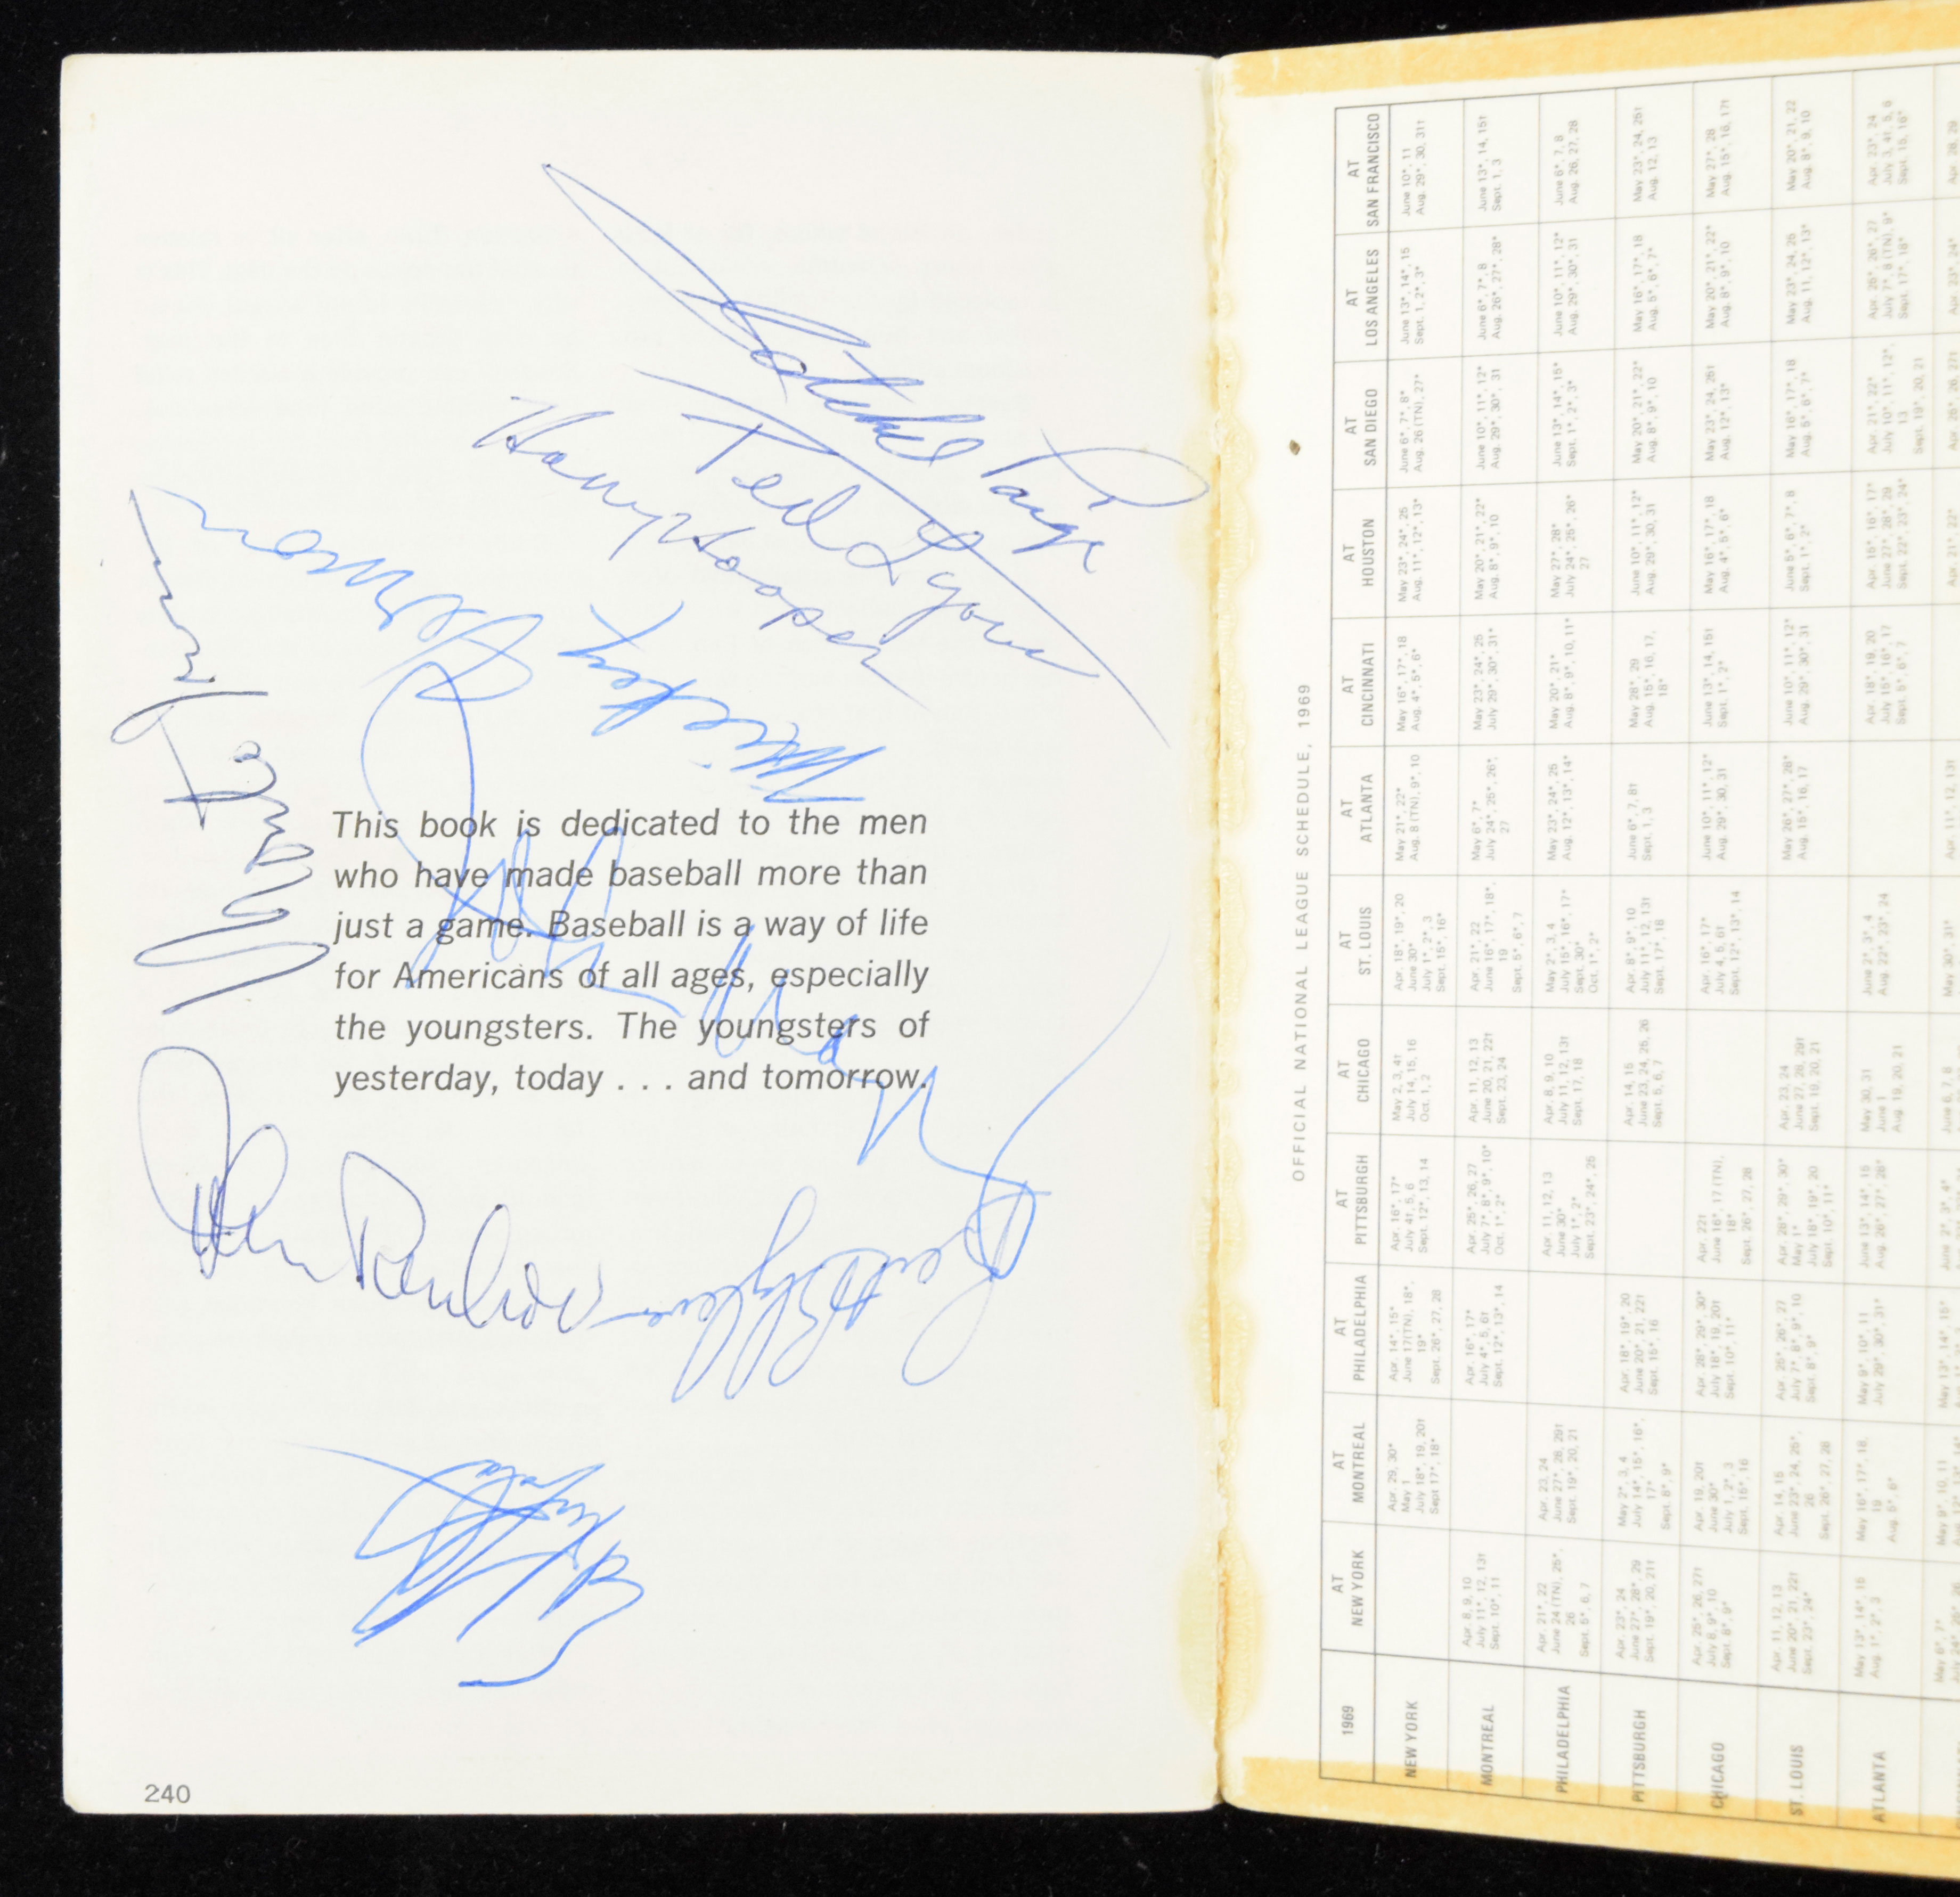 Satchel Paige
Ted Lyons
Harry Hooper
Mickey Vernon
This book is dedicated to the men
who have made baseball more than
just a game. Baseball is a way of life
for Americans of all ages, especially
the youngsters. The youngsters of
yesterday, today . . . and tomorrow.
Bert Blyleven
240
OFFICIAL NATIONAL LEAGUE SCHEDULE, 1969
1969
AT NEW YORK
AT MONTREAL
AT PHILADELPHIA
AT PITTSBURGH
AT CHICAGO
AT ST. LOUIS
AT ATLANTA
AT CINCINNATI
AT HOUSTON
AT SAN DIEGO
AT LOS ANGELES
AT SAN FRANCISCO
NEW YORK
Apr. 29, 30*
May 1
July 18*, 19, 20†
Sept 17*, 18*
Apr. 14*, 15*
June 17(TN), 18*,
19*
Sept. 26*, 27, 28
Apr. 16*, 17*
July 4†, 5, 6
Sept. 12*, 13, 14
May 2, 3, 4†
July 14, 15, 16
Oct. 1, 2
Apr. 18*, 19*, 20
June 30*
July 1*, 2*, 3
Sept. 15*, 16*
May 21*, 22*
Aug. 8(TN), 9*, 10
May 16*, 17*, 18
Aug. 4*, 5*, 6*
May 23*, 24*, 25
Aug. 11*, 12*, 13*
June 6*, 7*, 8*
Aug. 26(TN), 27*
June 13*, 14*, 15
Sept. 1, 2*, 3*
June 10*, 11
Aug. 29*, 30, 31†
MONTREAL
Apr. 8, 9, 10
July 11*, 12, 13†
Sept. 10*, 11
Apr. 16*, 17*
July 4*, 5, 6†
Sept. 12*, 13*, 14
Apr. 25*, 26, 27
July 7*, 8*, 9*, 10*
Oct. 1*, 2*
Apr. 11, 12, 13
June 20, 21, 22†
Sept. 23, 24
Apr. 21*, 22
June 16*, 17*, 18*,
19
Sept. 5*, 6*, 7
May 6*, 7*
July 24*, 25*, 26*,
27
May 23*, 24*, 25
July 29*, 30*, 31*
May 20*, 21*, 22*
Aug. 8*, 9*, 10
June 10*, 11*, 12*
Aug. 29*, 30*, 31
June 6*, 7*, 8
Aug. 26*, 27*, 28*
June 13*, 14, 15†
Sept. 1, 3
PHILADELPHIA
Apr. 21*, 22
June 24 (TN), 25*,
26
Sept. 5*, 6, 7
Apr. 23, 24
June 27*, 28, 29†
Sept. 19*, 20, 21
Apr. 11, 12, 13
June 30*
July 1*, 2*
Sept. 23*, 24*, 25
Apr. 8, 9, 10
July 11, 12, 13†
Sept. 17, 18
May 2*, 3, 4
July 15*, 16*, 17*
Sept. 30*
Oct. 1*, 2*
May 23*, 24*, 25
Aug. 12*, 13*, 14*
May 20*, 21*
Aug. 8*, 9*, 10, 11*
May 27*, 28*
July 24*, 25*, 26*
27
June 13*, 14*, 15*
Sept. 1*, 2*, 3*
June 10*, 11*, 12*
Aug. 29*, 30*, 31
June 6*, 7, 8
Aug. 26, 27, 28
PITTSBURGH
Apr. 23*, 24
June 27*, 28*, 29
Sept. 19*, 20, 21†
May 2*, 3, 4
July 14*, 15*, 16*,
17*
Sept. 8*, 9*
Apr. 18*, 19*, 20
June 20*, 21, 22†
Sept. 15*, 16
Apr. 14, 15
June 23, 24, 25, 26
Sept. 5, 6, 7
Apr. 8*, 9*, 10
July 11*, 12, 13†
Sept. 17*, 18
June 6*, 7, 8†
Sept. 1, 3
May 28*, 29
Aug. 15*, 16, 17,
18*
June 10*, 11*, 12*
Aug. 29*, 30, 31
May 20*, 21*, 22*
Aug. 8*, 9*, 10
May 16*, 17*, 18
Aug. 5*, 6*, 7*
May 23*, 24, 25†
Aug. 12, 13
CHICAGO
Apr. 25*, 26, 27†
July 8, 9*, 10
Sept. 8*, 9*
Apr. 19, 20†
June 30*
July 1, 2*, 3
Sept. 15*, 16
Apr. 28*, 29*, 30*
July 18*, 19, 20†
Sept. 10*, 11*
Apr. 22†
June 16*, 17 (TN),
18*
Sept. 26*, 27, 28
Apr. 16*, 17*
July 4, 5, 6†
Sept. 12*, 13*, 14
June 10*, 11*, 12*
Aug. 29*, 30, 31
June 13*, 14, 15†
Sept. 1*, 2*
May 16*, 17*, 18
Aug. 4*, 5*, 6*
May 23*, 24, 25†
Aug. 12*, 13*
May 20*, 21*, 22*
Aug. 8*, 9*, 10
May 27*, 28
Aug. 15*, 16, 17†
ST. LOUIS
Apr. 11, 12, 13
June 20*, 21, 22†
Sept. 23*, 24*
Apr. 14, 15
June 23*, 24, 25*,
26
Sept. 26*, 27, 28
Apr. 25*, 26*, 27
July 7*, 8*, 9*, 10
Sept. 8*, 9*
Apr. 28*, 29*, 30*
May 1*
July 18*, 19*, 20
Sept. 10*, 11*
Apr. 23, 24
June 27, 28, 29†
Sept. 19, 20, 21
May 26*, 27*, 28*
Aug. 15*, 16, 17
June 10*, 11*, 12*
Aug. 29*, 30*, 31
June 5*, 6*, 7*, 8
Sept. 1*, 2*
May 16*, 17*, 18
Aug. 5*, 6*, 7*
May 23*, 24, 25
Aug. 11, 12*, 13*
May 20*, 21, 22
Aug. 8*, 9, 10
ATLANTA
May 13*, 14*, 15
Aug. 1*, 2*, 3
May 16*, 17*, 18,
19
Aug. 5*, 6*
May 9*, 10*, 11
July 29*, 30*, 31*
June 13*, 14*, 15
Aug. 26*, 27*, 28*
May 30, 31
June 1
Aug. 19, 20, 21
June 2*, 3*, 4
Aug. 22*, 23*, 24
Apr. 18*, 19, 20
July 15*, 16*, 17
Sept. 5*, 6*, 7
Apr. 15*, 16*, 17*
June 27*, 28*, 29
Sept. 22*, 23*, 24*
Apr. 21*, 22*
July 10*, 11*, 12*,
13
Sept. 19*, 20, 21
Apr. 25*, 26*, 27
July 7*, 8 (TN), 9*
Sept. 17*, 18*
Apr. 23*, 24
July 3, 4†, 5, 6
Sept. 15, 16*